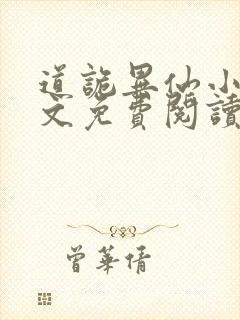 道詭異仙小
文免費閱讀
曾華倩